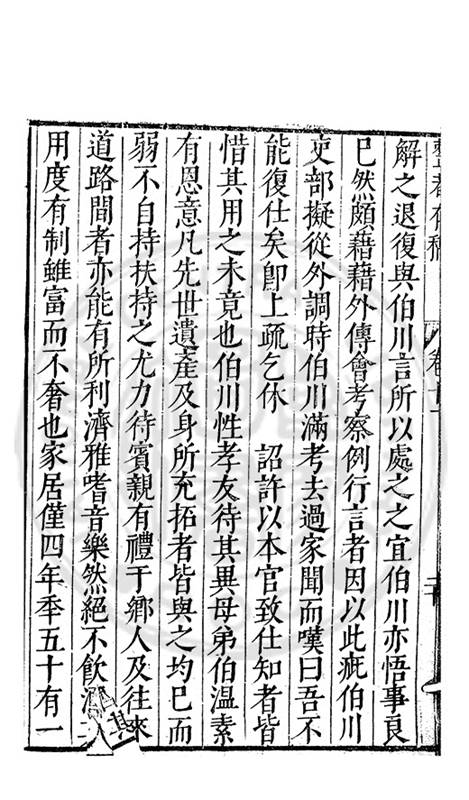 整菴存稿 卷
解之退復與伯川言所以處之之宜伯川亦悟事良
已然頗藉藉外傳會考察例行言者因以此疵伯川
吏部擬從外調時伯川滿考去過家聞而嘆曰吾不
能復仕矣卽上疏乞休 詔許以本官致仕知者皆
惜其用之未竟也伯川性孝友待其異母弟伯溫素
有恩意凡先世遺產及身所充拓者皆與之均已而
弱不自持扶持之尤力待賓親有禮于鄉人及往來
道路間者亦能有所利濟雅嗜音樂然絕不飲酒
用度有制雖富而不奢也家居僅四年年五十有一